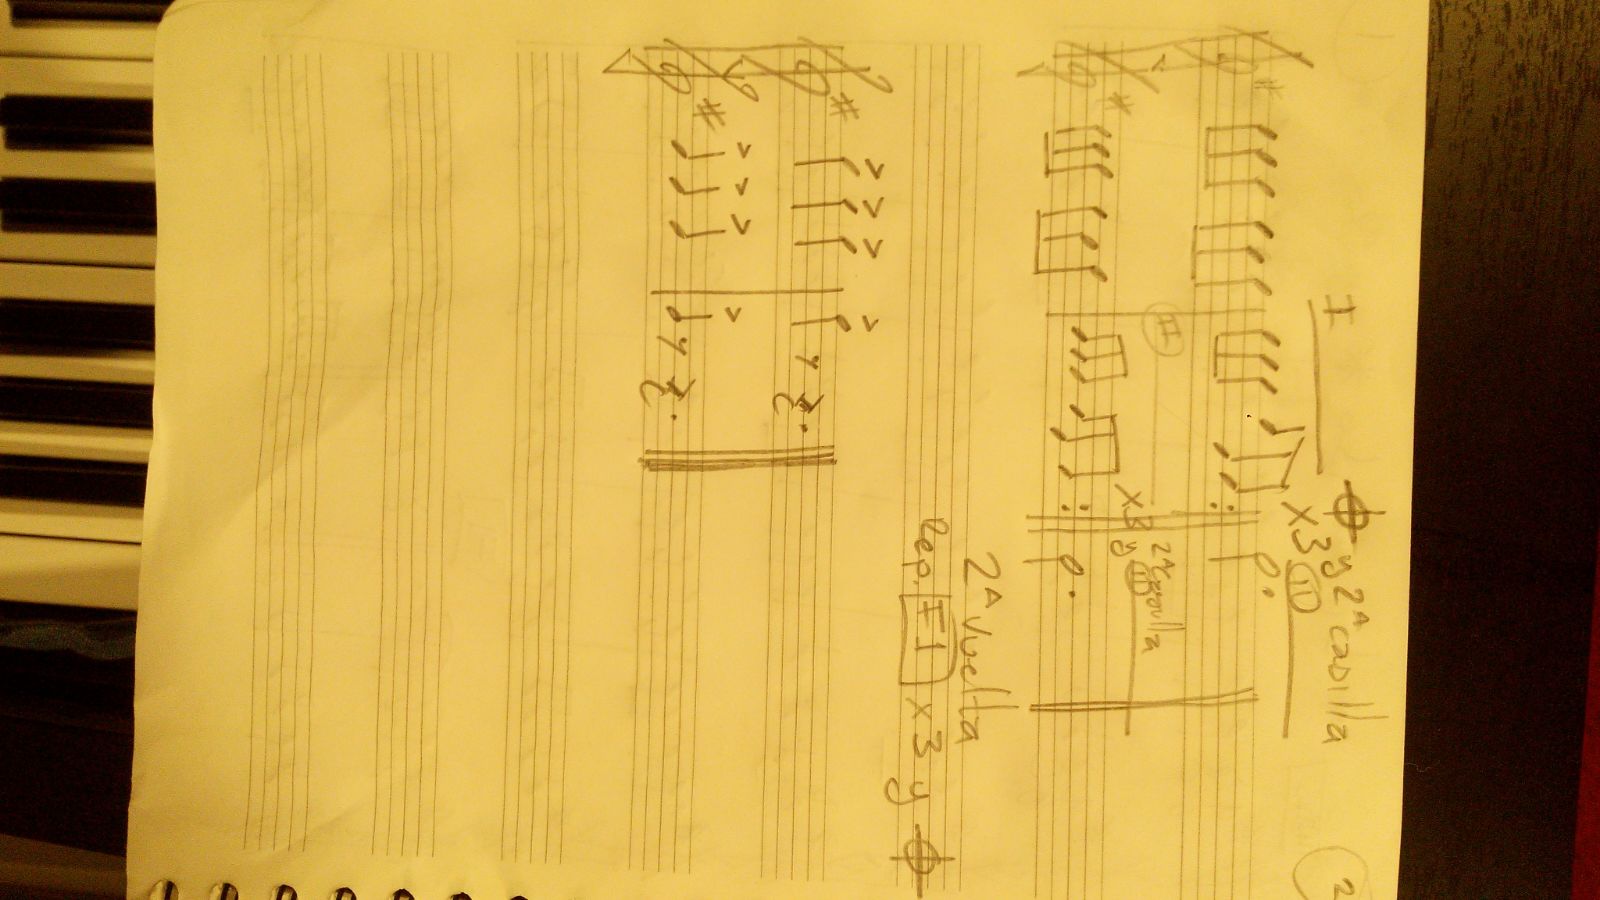 2
I
x3 y 2ª casilla
II
II
x3 y 2ª casilla
II
2ª vuelta
Rep. I x3 y